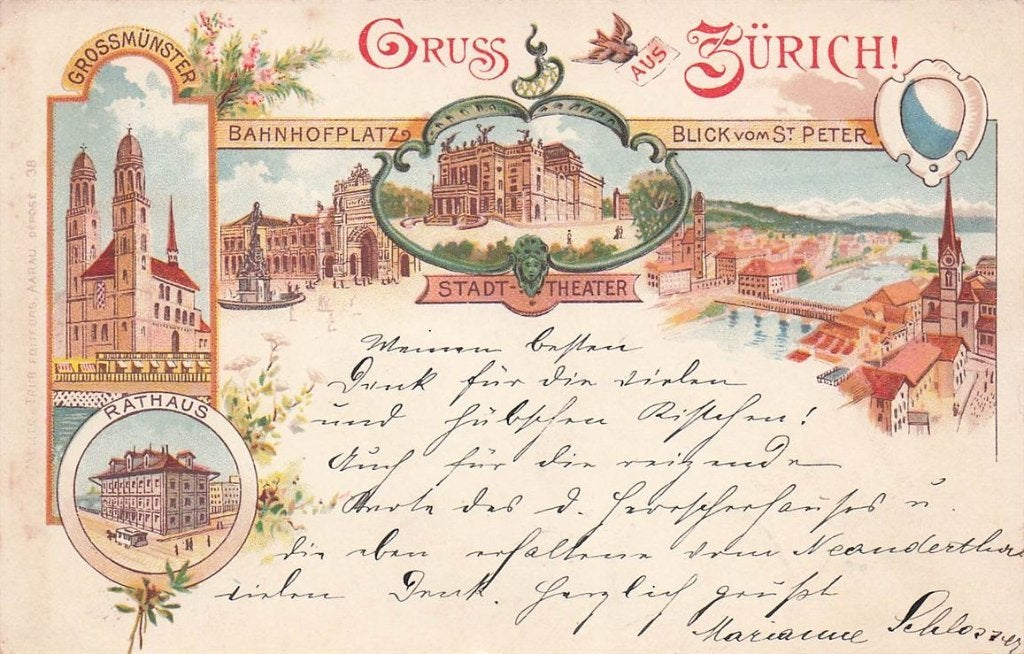 GRUSS AUS ZÜRICH!
GROSSMÜNSTER
BAHNHOFPLATZ
BLICK VOM ST PETER
STADT-THEATER
RATHAUS
AARAU DÉPOSÉ 38
Meinen besten
Dank für die vielen
und hübschen Kistchen!
Auch für die reizende
Karte des d. Herrscherhauses u.
die eben erhaltene vom Neanderthal
vielen Dank. Herzlich grüßt
Marianne Schlosser